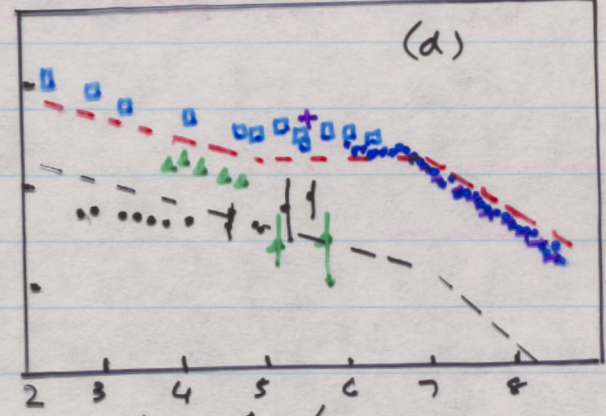 (d)
2 3 4 5 6 7 8